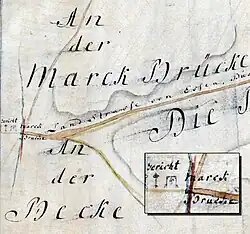 An
der
Marck Brücke
Landstrasse von Essen
Die
gericht
marck
Brucke
An
der
Becke
gericht
marck
Brucke